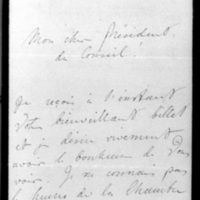 Mon cher Président
du Conseil.
Je reçois à l'instant
votre bienveillant billet
et je désire vivement
avoir le bonheur de vous
voir. Je ne connais pas
de la Chambre